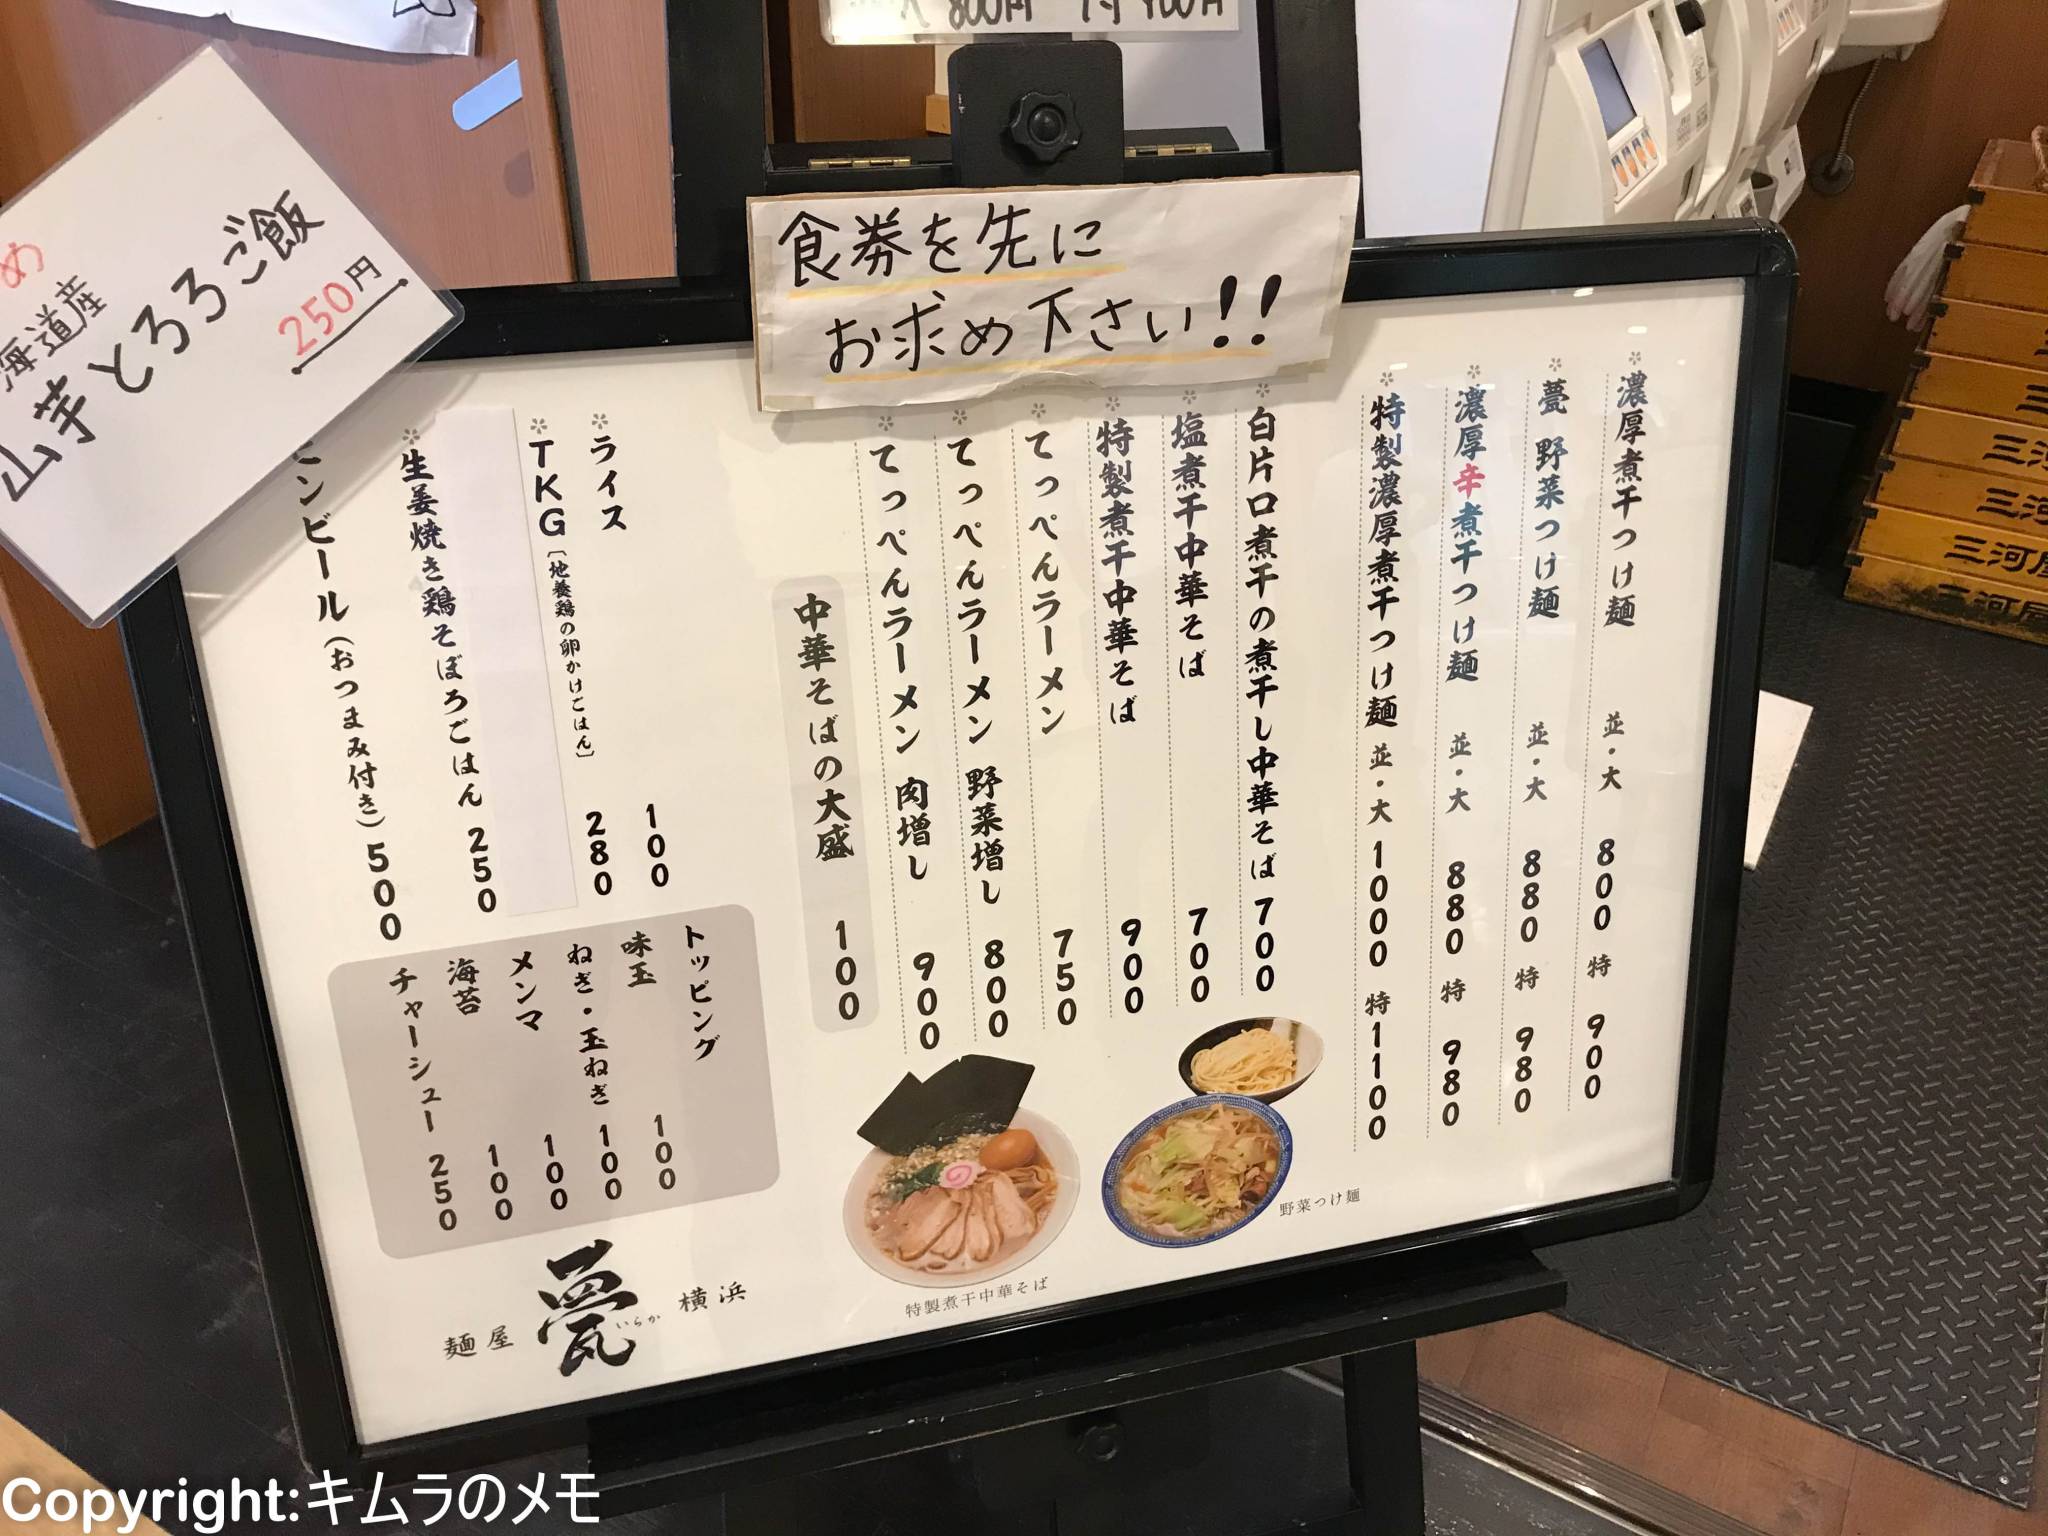 800円
食券を先に
お求め下さい!!
め
海道産
山芋とろろご飯
250円
濃厚煮干つけ麺 並・大 800 特 900
甍 野菜つけ麺 並・大 880 特 980
濃厚辛煮干つけ麺 並・大 880 特 980
特製濃厚煮干つけ麺 並・大 1000 特 1100
白片口煮干の煮干し中華そば 700
塩煮干中華そば 700
特製煮干中華そば 900
てっぺんラーメン 750
てっぺんラーメン 野菜増し 800
てっぺんラーメン 肉増し 900
中華そばの大盛 100
ライス 100
TKG〔地養鶏の卵かけごはん〕 280
生姜焼き鶏そぼろごはん 250
ビンビール(おつまみ付き) 500
トッピング
味玉 100
ねぎ・玉ねぎ 100
メンマ 100
海苔 100
チャーシュー 250
野菜つけ麺
特製煮干中華そば
麺屋 甍 いらか 横浜
三河
三河
三河屋
三河屋
Copyright:キムラのメモ